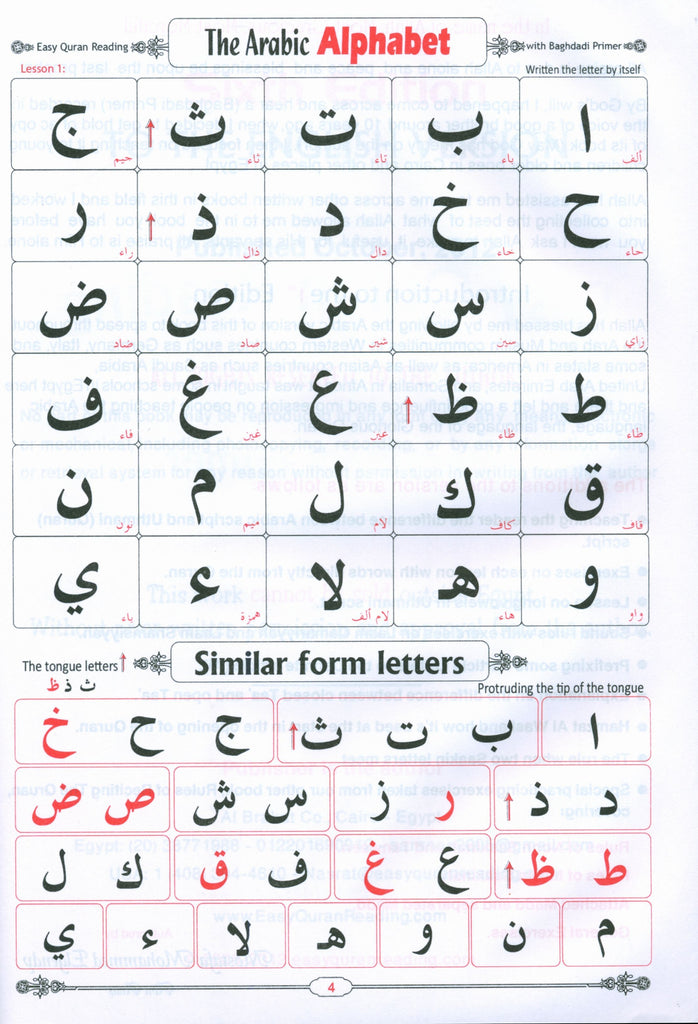 Easy Quran Reading
The Arabic Alphabet
with Baghdadi Primer
Lesson 1:
Written the letter by itself
ا ب ت ث ↑ ج
ألف باء تاء ثاء جيم
ح خ د ذ ↑ ر
حاء خاء دال ذال راء
ز س ش ص ض
زاي سين شين صاد ضاد
ط ظ ↑ ع غ ف
طاء ظاء عين غين فاء
ق ك ل م ن
قاف كاف لام ميم نون
و هـ لا ء ي
واو هاء لام ألف همزة ياء
The tongue letters ↑
Similar form letters
ث ذ ظ
Protruding the tip of the tongue
ا ب ت ث ↑ ج ح خ
د ذ ↑ ر ز س ش ص ض
ط ظ ↑ ع غ ف ق ك ل
م ن و هـ لا ء ي
4